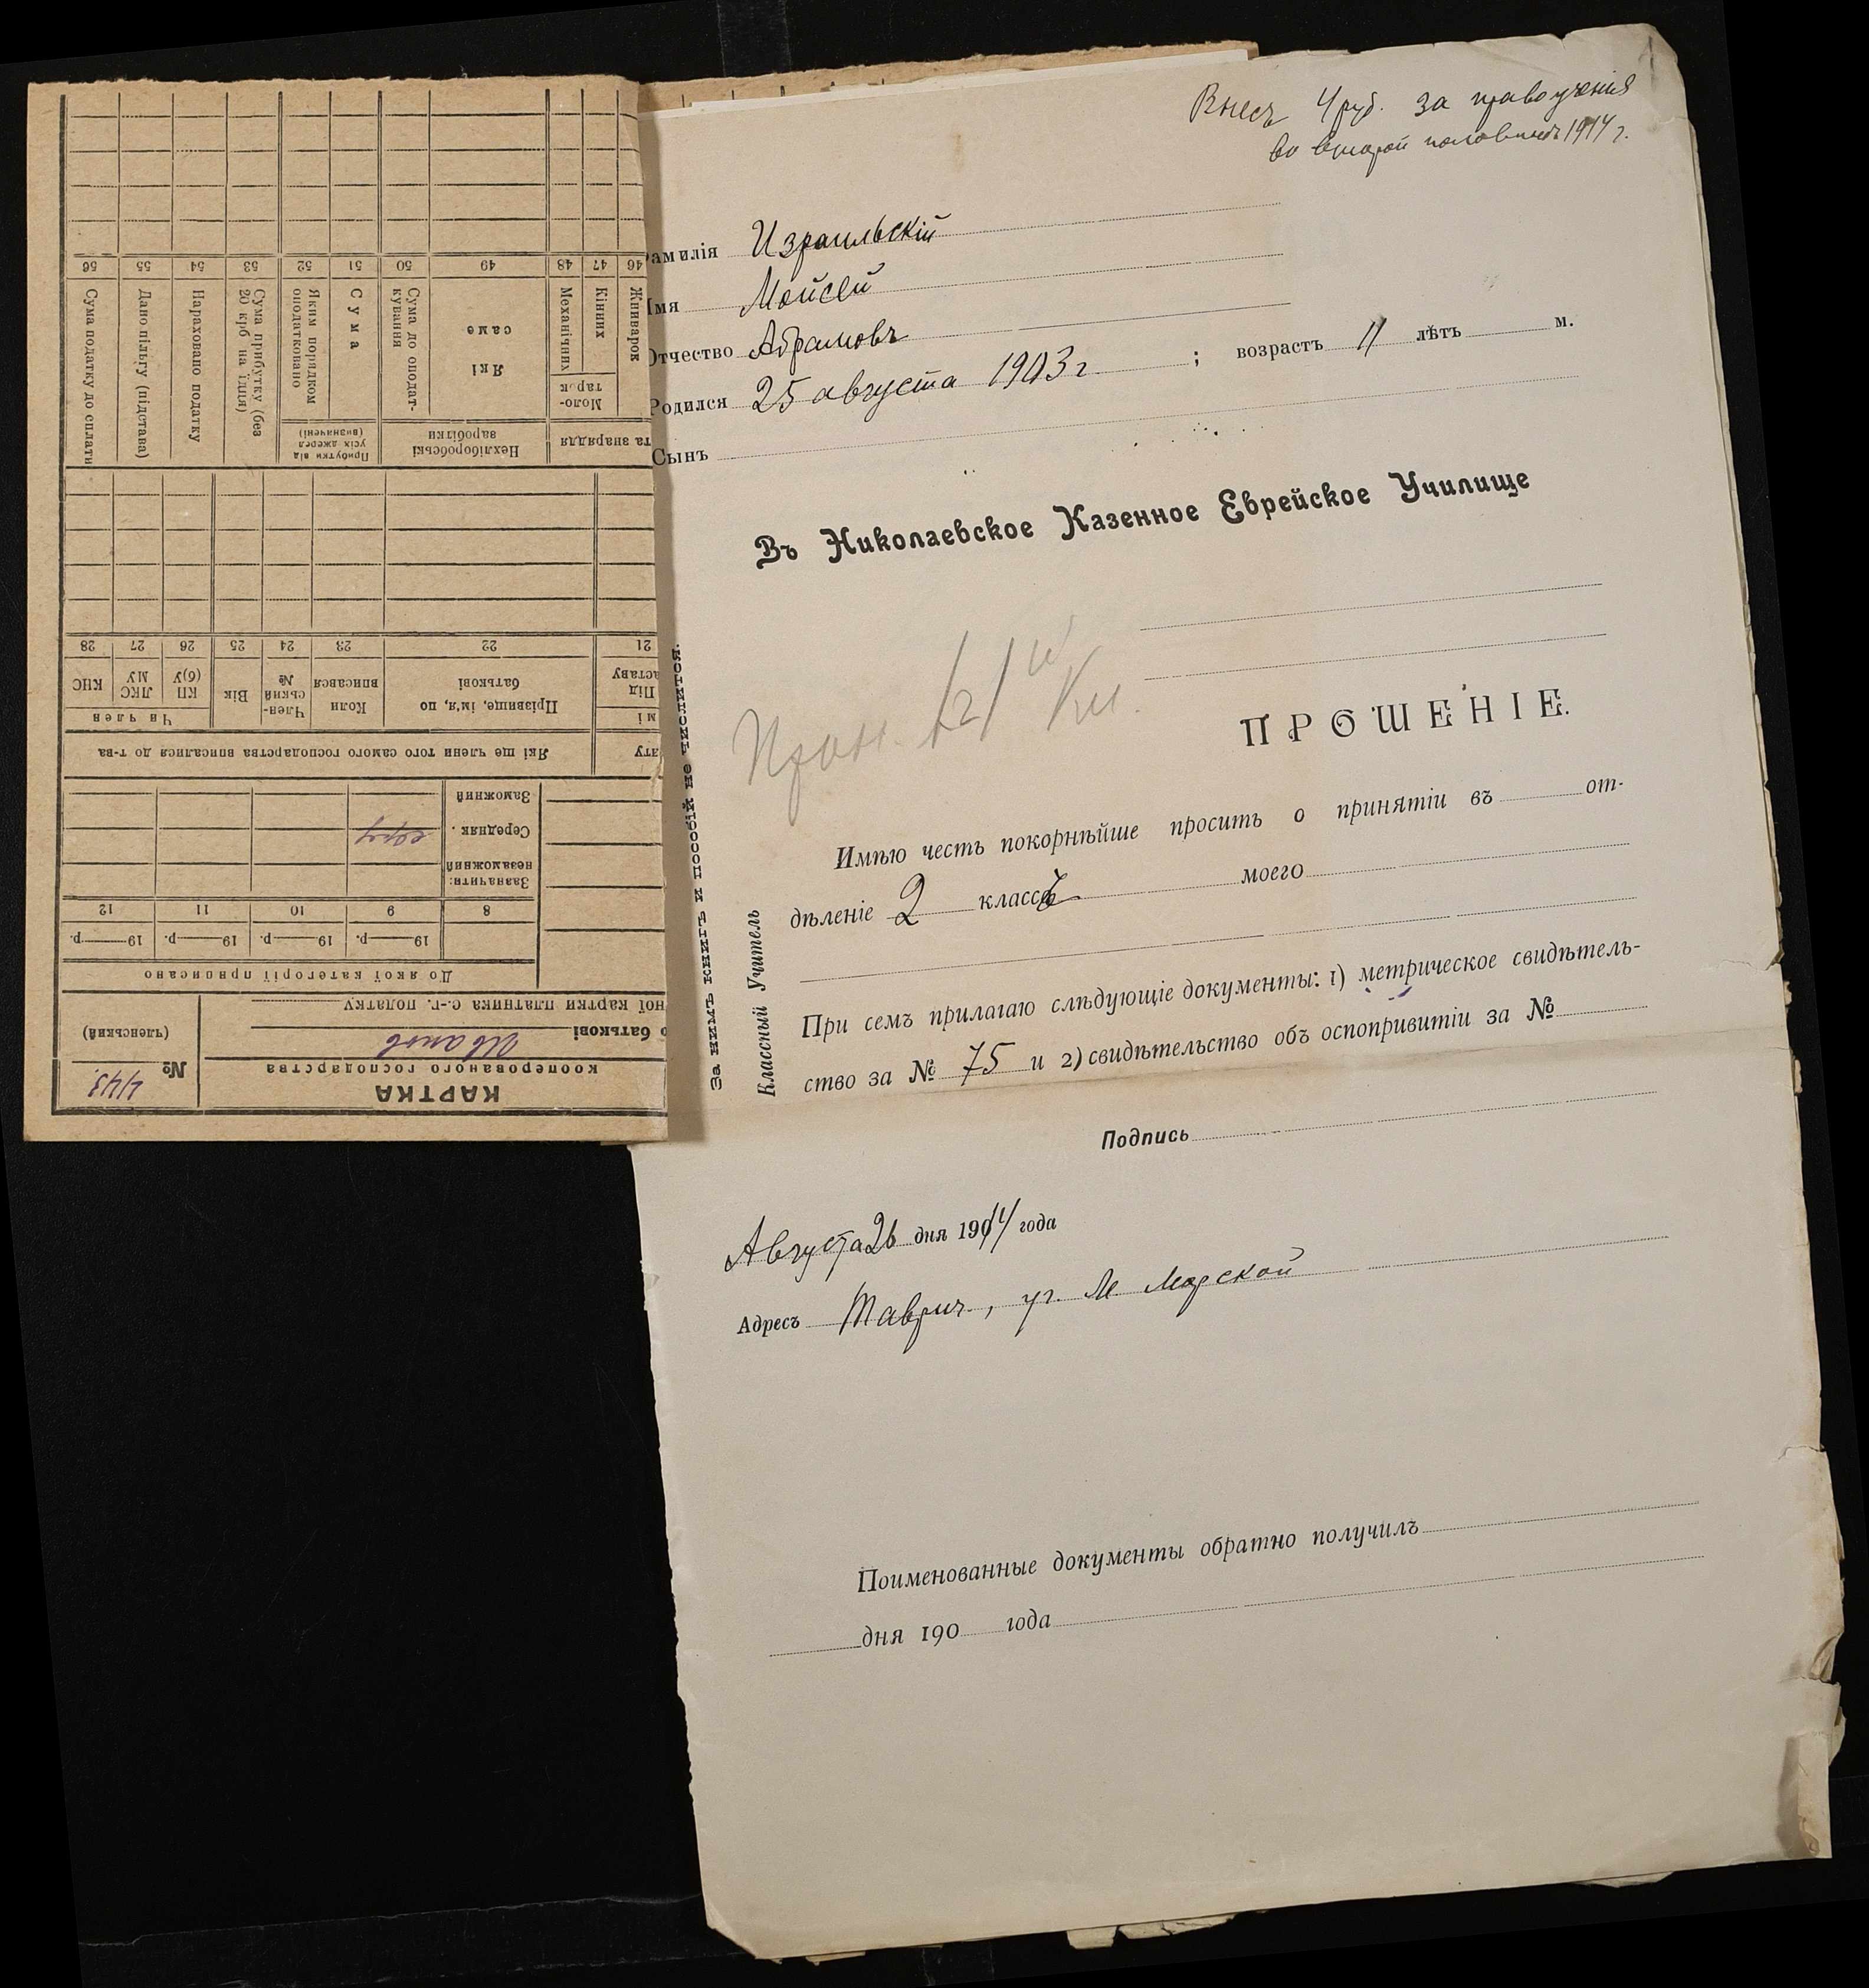 Внесъ 4 руб. за правоученія
во второй половинѣ 1914 г.
амилія Израильскій
Имя Мойсей
Отчество Абрамовъ
Родился 25 августа 1903 г. ; возрастъ 11 лѣтъ м.
Сынъ
Въ Николаевское Казенное Еврейское Училище
ПРОШЕНІЕ.
Имѣю честь покорнѣйше просить о принятіи въ от-
дѣленіе 2 классъ моего
При семъ прилагаю слѣдующіе документы: 1) метрическое свидѣтель-
ство за № 75 и 2) свидѣтельство объ оспопривитіи за №
Подпись
Августа 26 дня 1914 года
Адресъ Таврич., уг. М Морской
Поименованные документы обратно получилъ
дня 190 года
За нимъ книгъ и пособій не числится.
Классный Учитель
КАРТКА
кооперованого господарства
№ 4/43
(членський)
о батькові Иванов
ної картки платника с.-г. податку
До якої категорії приписано
19 р. 19 р. 19 р. 19 р.
8 9 10 11 12
Зазначити:
незаможний
Середняк
Заможний
ату Які ще члени того самого господарства вписалися до т-ва
мі Чи член
Під
аставу Прізвище, ім'я, по
батькові Коли
вписався Член-
ський
№ Вік КП
(б)У ЛКС
МУ КНС
21 22 23 24 25 26 27 28
та знаряддя Нехліборобські
заробітки Прибутки від
усіх джерел
(визначені)
Жниварок Кінних Механічних
Моло-
тарок
Які
саме Сума до оподат-
кування Сума Яким порядком
оподатковано Сума прибутку (без
20 крб на їдця) Нараховано податку Дано пільгу (підстава) Сума податку до сплати
46 47 48 49 50 51 52 53 54 55 56